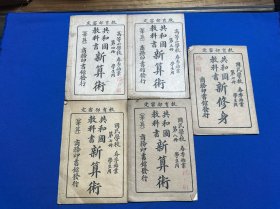 教育部審定
高等小學校
春季始業
學生用
共和國
教科書
新算術
筆算
商務印書館發行
教育部審定
高等小學校
春季始業
學生用
共和國
教科書
新算術
筆算
商務印書館發行
教育部審定
國民學校
春季始業
學生用
共和國
教科書
新修身
商務印書館發行
教育部審定
國民學校
春季始業
學生用
共和國
教科書
新算術
筆算
商務印書館發行
教育部審定
國民學校
春季始業
學生用
共和國
教科書
新算術
筆算
商務印書館發行